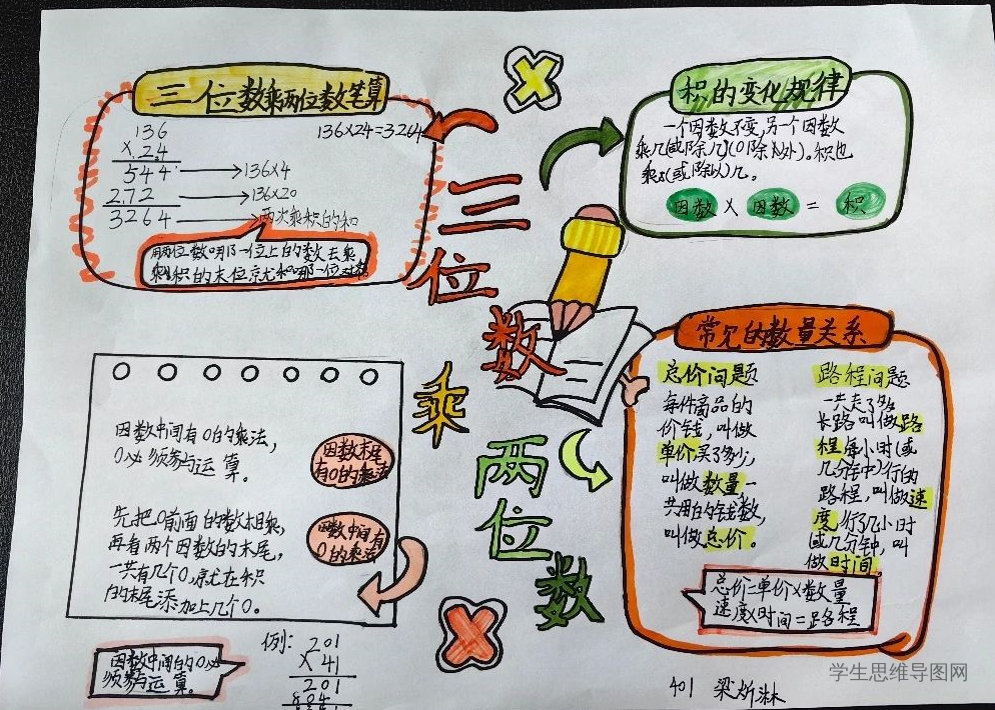 三位数乘两位数笔算
136
×24
544 → 136×4
272 → 136×20
3264 → 两次乘积的和
136×24=3264
用两位数哪一位上的数去乘,
乘积的末位就和哪一位对齐
三位数乘两位数
积的变化规律
一个因数不变,另一个因数
乘几(或除几)(0除外)。积也
乘(或除以)几。
因数 × 因数 = 积
因数中间有0的乘法,
0必须参与运算。
因数末尾
有0的乘法
先把0前面的数相乘,
再看两个因数的末尾,
一共有几个0,就在积
的末尾添加上几个0。
因数中间有
0的乘法
因数中间的0必
须参与运算。
例:
201
×41
201
804
常见的数量关系
总价问题
每件商品的
价钱,叫做
单价买了多少,
叫做数量,一
共用的钱数,
叫做总价。
路程问题
一共走了多
长路叫做路
程每小时(或
几分钟)行的
路程,叫做速
度行了几小时
或几分钟,叫
做时间。
总价=单价×数量
速度×时间=路程
401 梁
学生思维导图网